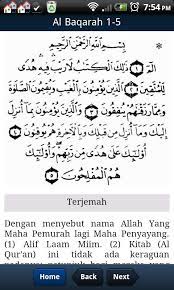 7:54 PM
Al Baqarah 1-5
بِسْمِ اللَّهِ الرَّحْمَٰنِ الرَّحِيمِ
الٓمٓ ١ ذَٰلِكَ الْكِتَٰبُ لَا رَيْبَ فِيهِ هُدًى
لِلْمُتَّقِينَ ٢ الَّذِينَ يُؤْمِنُونَ بِالْغَيْبِ وَيُقِيمُونَ الصَّلَوٰةَ
وَمِمَّا رَزَقْنَٰهُمْ يُنْفِقُونَ ٣ وَالَّذِينَ يُؤْمِنُونَ بِمَا أُنْزِلَ
إِلَيْكَ وَمَا أُنْزِلَ مِنْ قَبْلِكَ وَبِالْآخِرَةِ هُمْ يُوقِنُونَ ٤
أُولَٰئِكَ عَلَىٰ هُدًى مِنْ رَبِّهِمْ وَأُولَٰئِكَ
هُمُ الْمُفْلِحُونَ ٥
Terjemah
Dengan menyebut nama Allah Yang
Maha Pemurah lagi Maha Penyayang.
(1) Alif Laam Miim. (2) Kitab (Al
Qur'an) ini tidak ada keraguan
Back Home Next